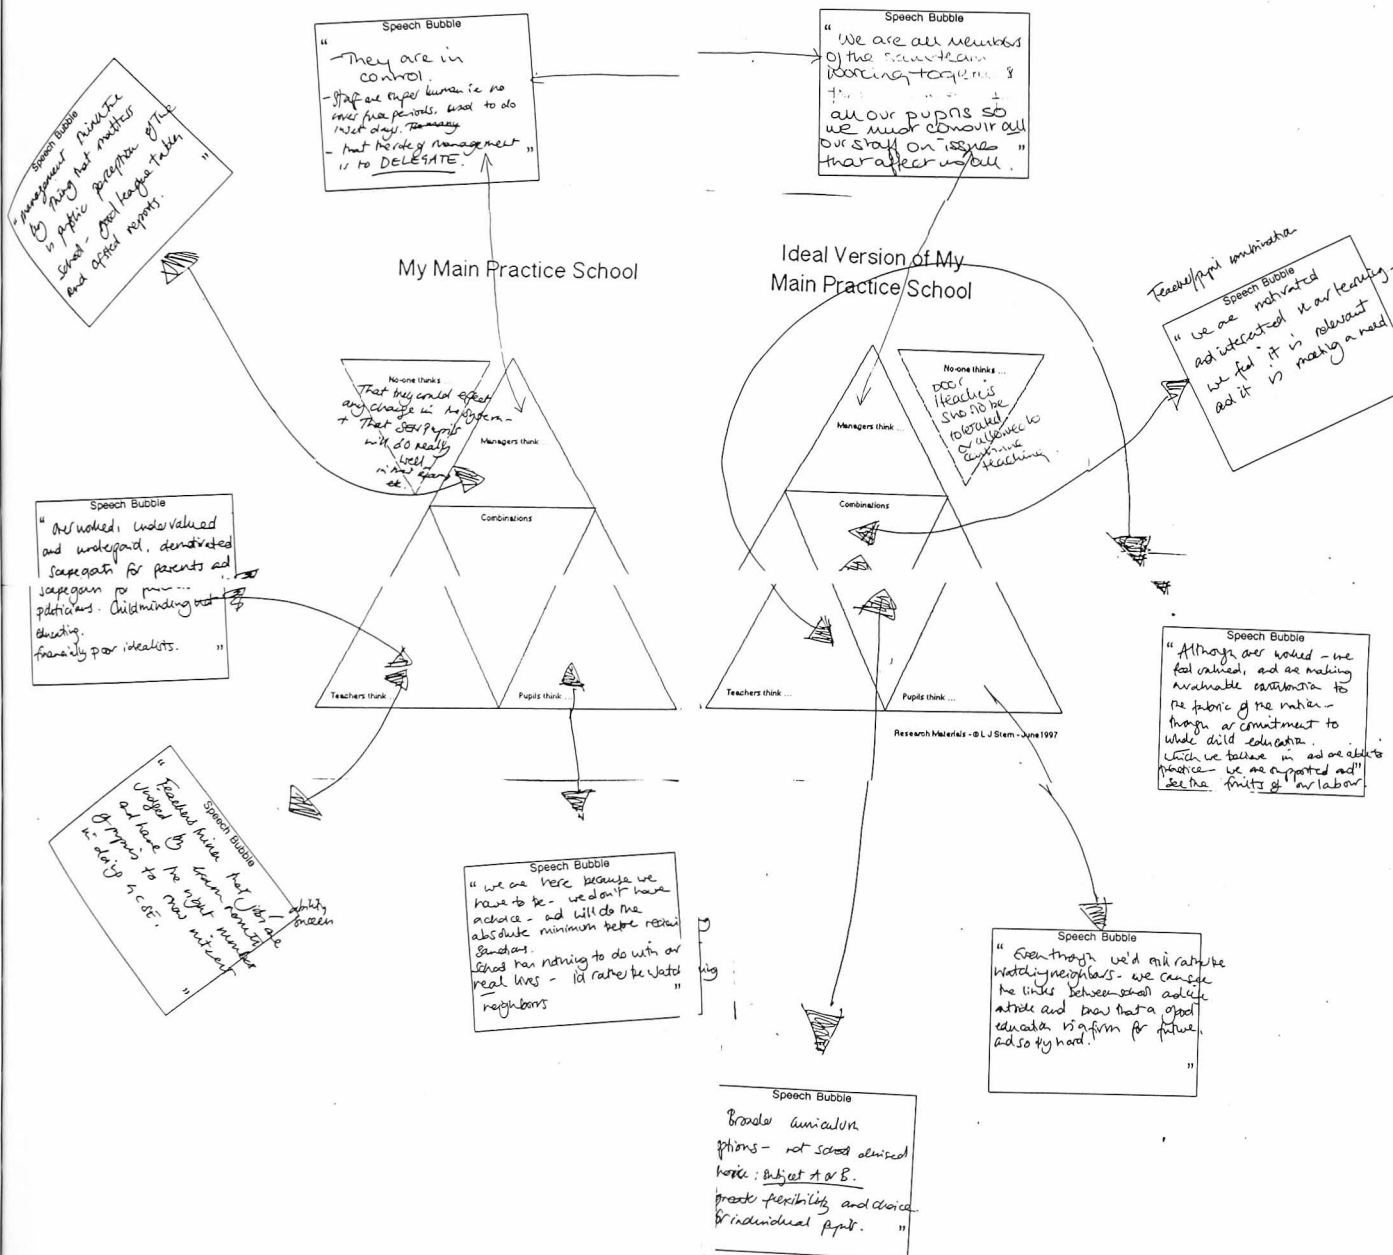 Speech Bubble
“
- They are in
control.
- Staff are super human i.e. no
over free periods, used to do
inset days.
- that the role of management
is to DELEGATE. ”
Speech Bubble
“We are all members
of the same team
working together &
all our pupils so
we must consult all
our staff on issues
that affect us all. ”
Speech Bubble
“management think the
only thing that matters
is public perception of the
school - good league tables
and ofsted reports. ”
My Main Practice School
Ideal Version of My
Main Practice School
Teacher/pupil combination
Speech Bubble
“we are motivated
and interested in our learning -
we feel it is relevant
and it is meeting a need
No-one thinks
That they could effect
any change in the system -
+ That SEN Pupils
will do really
well
in their exams
etc.
Managers think ...
Combinations
Teachers think ...
Pupils think ...
Managers think ...
No-one thinks ...
poor
teachers
should be
tolerated
or allowed to
continue
teaching.
Combinations
Teachers think ...
Pupils think ...
Research Materials - © L J Stern - June 1997
Speech Bubble
“overworked, undervalued
and underpaid, demotivated
scapegoats for parents and
scapegoats for
politicians. Childminding not
educating.
financially poor idealists. ”
Speech Bubble
“Teachers think that jobs are
judged by exam results
and have the right number
of pupils to show interest
in doing GCSE. ”
ability
Speech Bubble
“we are here because we
have to be - we don't have
a choice - and will do the
absolute minimum before
sanctions.
School has nothing to do with our
real lives - I'd rather be watching
neighbors ”
Speech Bubble
“Although over worked - we
feel valued, and are making
invaluable contribution to
the fabric of the nation -
through our commitment to
whole child education.
which we believe in and are able to
practice - we are supported and ”
see the fruits of our labour.
Speech Bubble
“Even though we'd still rather be
watching neighbors - we can see
the links between school and life
outside and know that a good
education is a firm for future,
and so try hard.
”
Speech Bubble
Broader curriculum
options - not school devised
choice: Subject A or B.
flexibility and choice
for individual pupils. ”